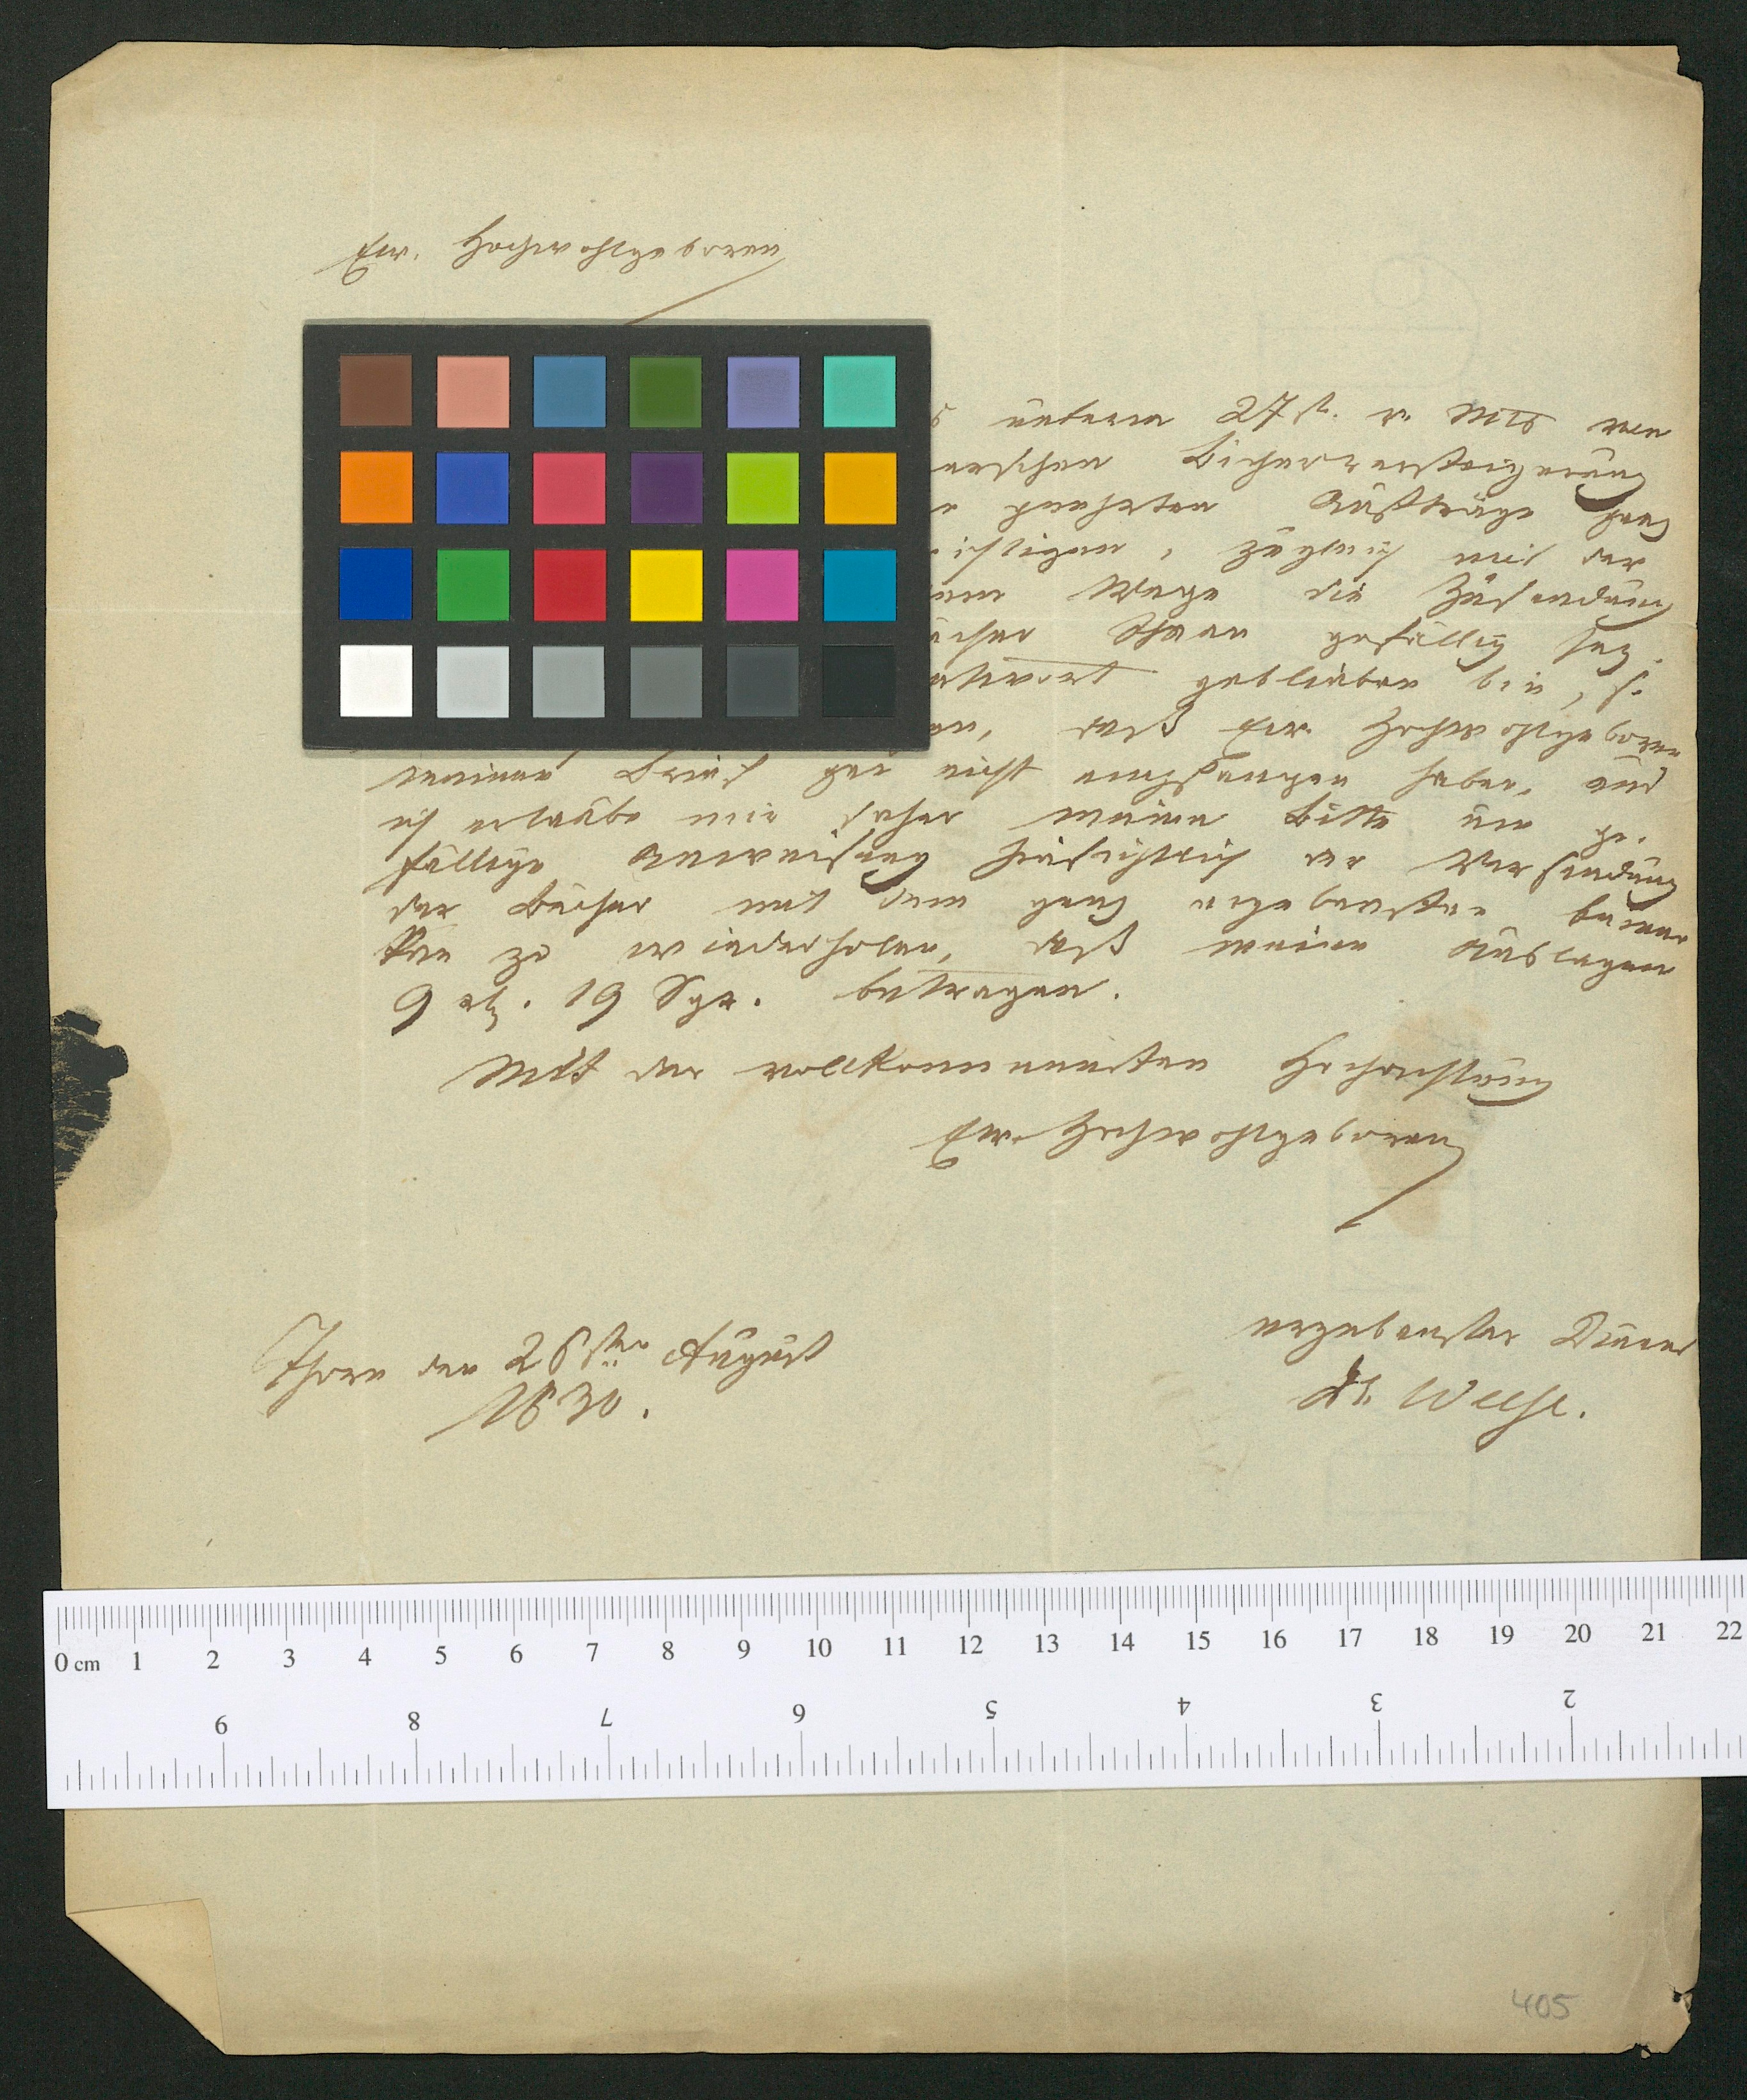 Ew. Hochwohlgeboren
unterm 27st. v. Mts von
erschen Bücherversteigerung
geehrten Aufträge ganz
ichtigen, zugleich mit der
Wege die Zusendung
ücher Ihnen gefällig sey.
Antwort geblieben bin, so
en, daß Ew. Hochwohlgeboren
meinen Brief gar nicht empfangen haben, und
ich erlaube mir daher meine Bitte um ge-
fällige Anweisung hinsichtlich der Versendung
der Bücher mit dem ganz ergebensten bemer
ken zu wiederholen, daß meine Auslagen
9 rt. 19 Sgr. betragen.
Mit der vollkommensten Hochachtung
Ew. Hochwohlgeboren
ergebenster Diener
Dr. Weese.
Thorn den 28sten August
1830.
0 cm 1 2 3 4 5 6 7 8 9 10 11 12 13 14 15 16 17 18 19 20 21 22
9 8 7 6 5 4 3 2
405